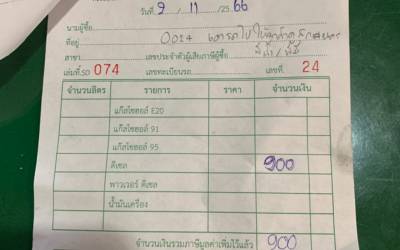 วันที่ 9 / 11 / 25 66
นามผู้ซื้อ
ที่อยู่ 0024
สาขา เลขประจำตัวผู้เสียภาษีผู้ซื้อ
เล่มที่.SO 074 เลขทะเบียนรถ. เลขที่. 24
จำนวนลิตร รายการ ราคา จำนวนเงิน
แก๊สโซฮอล์ E20
แก๊สโซฮอล์ 91
แก๊สโซฮอล์ 95
ดีเซล 900
พาวเวอร์ ดีเซล
น้ำมันเครื่อง
จำนวนเงินรวมภาษีมูลค่าเพิ่มไว้แล้ว 900